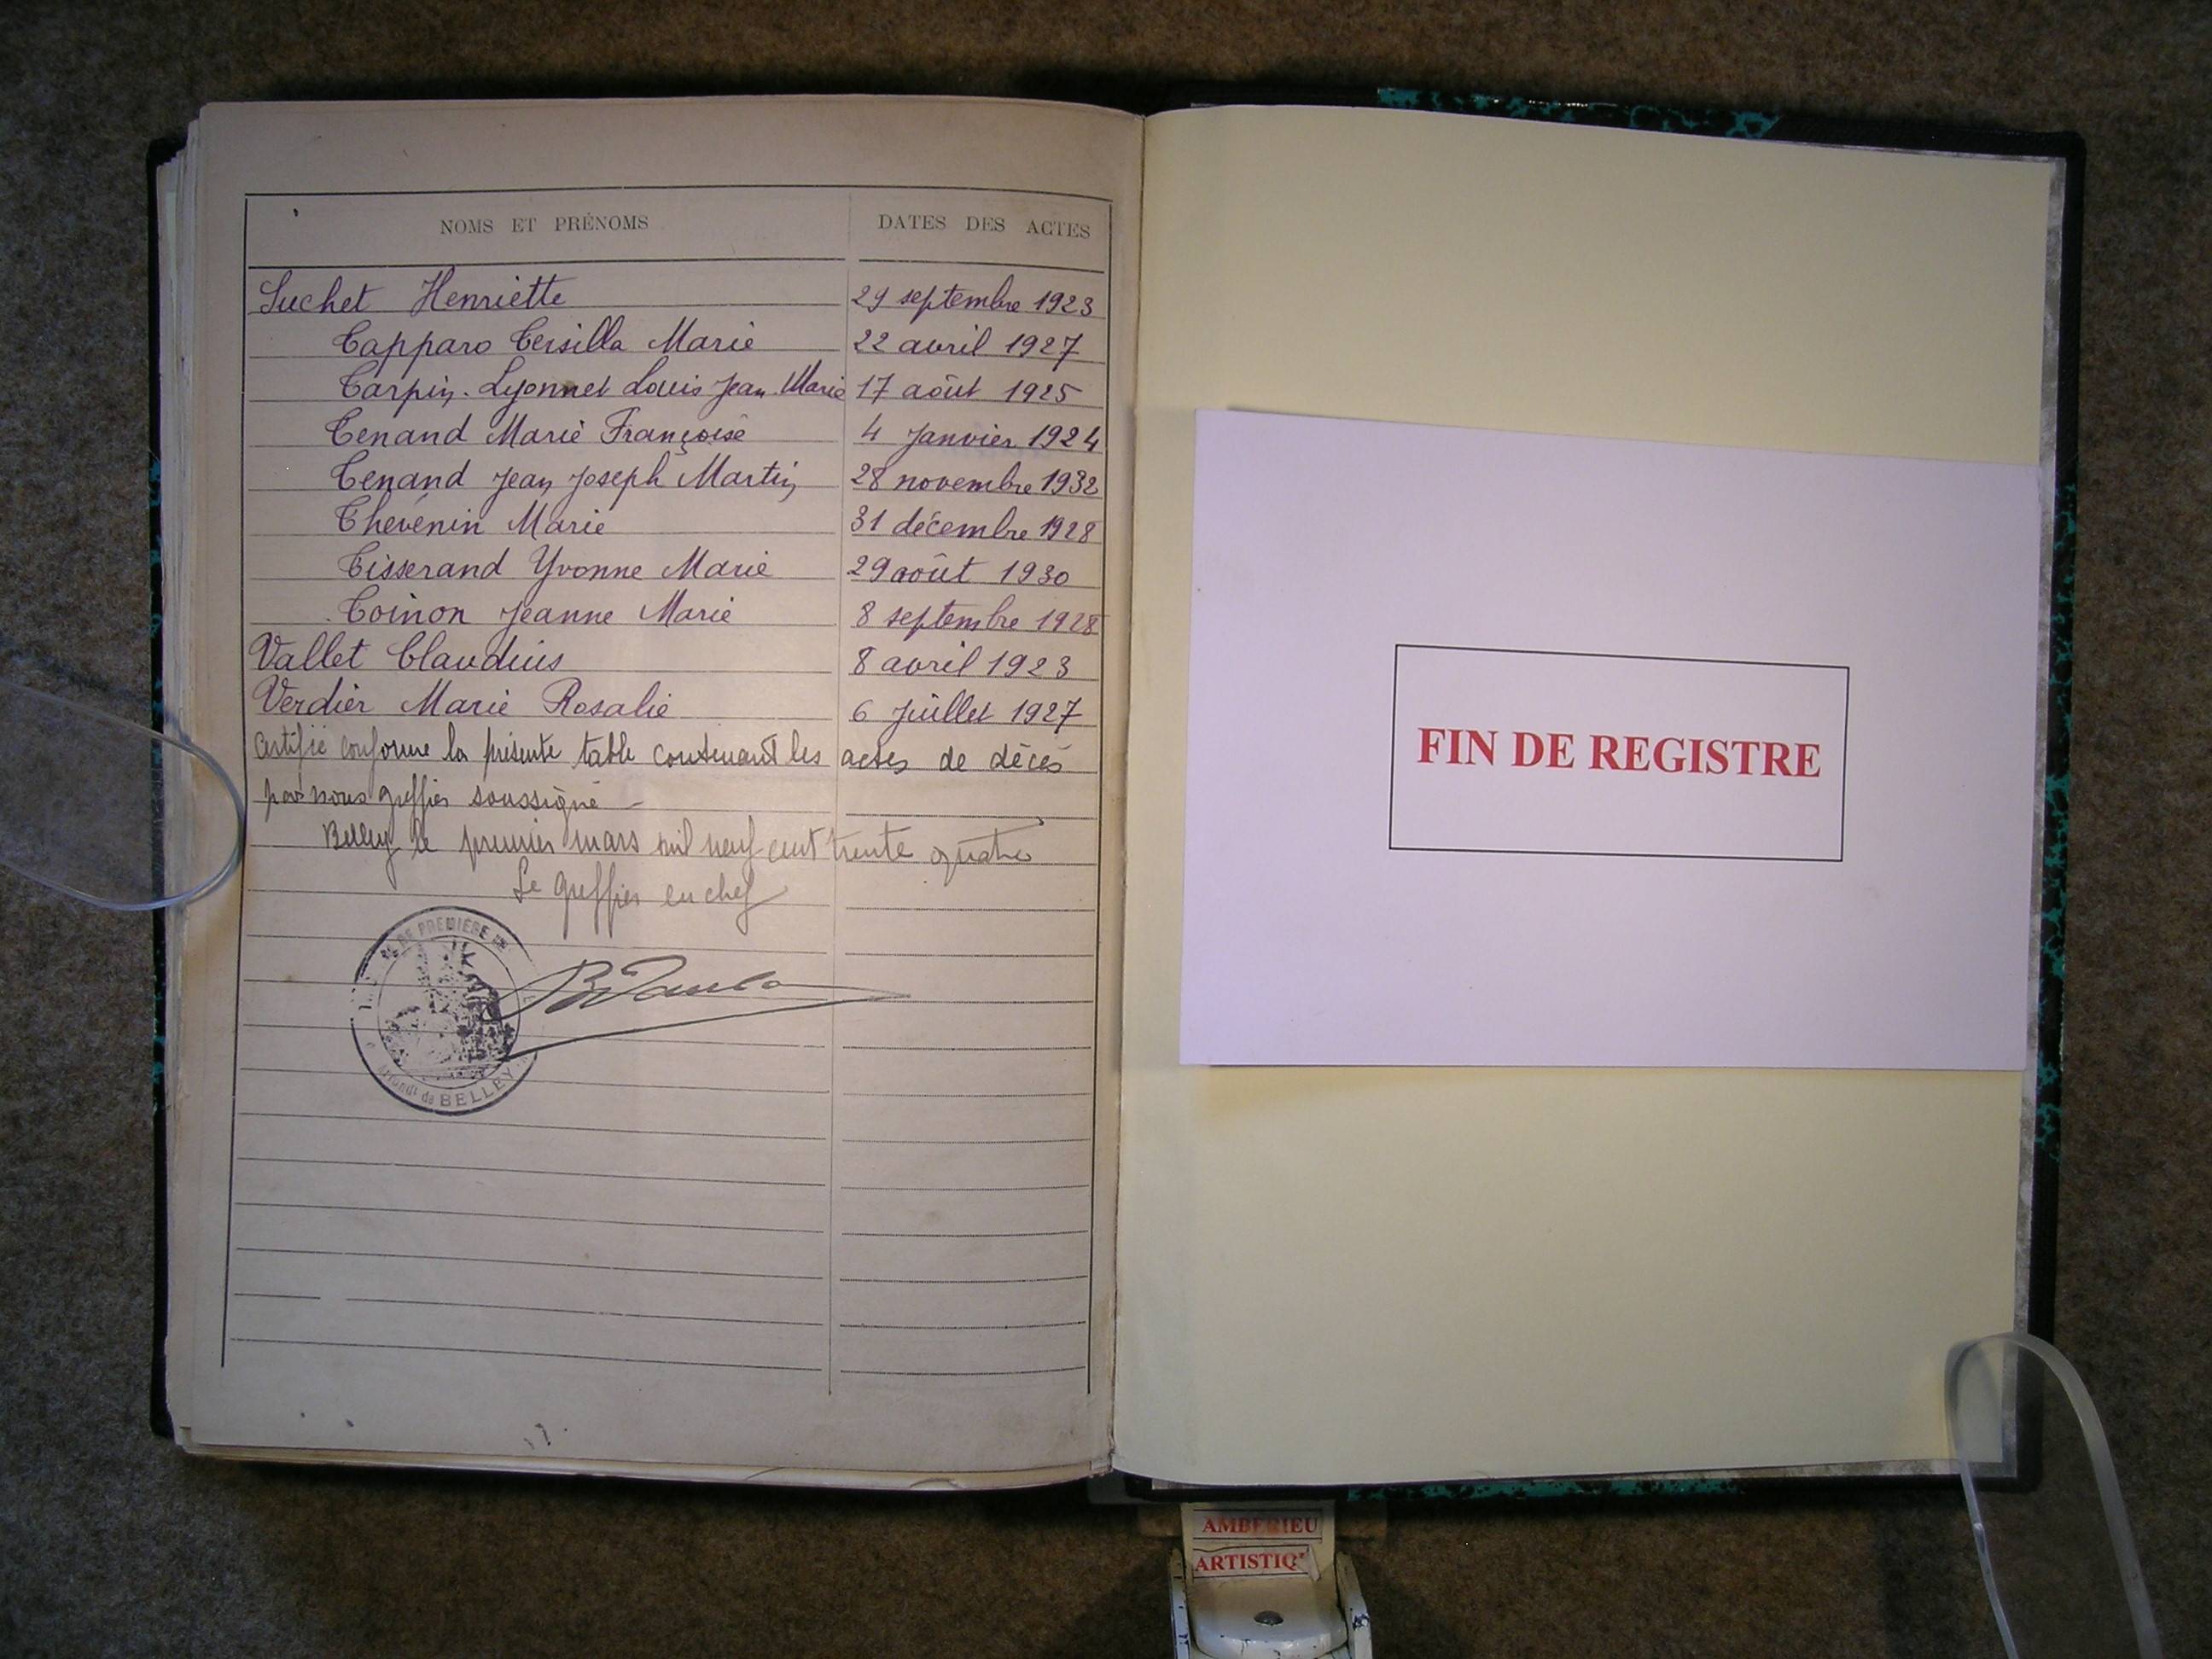 NOMS ET PRÉNOMS DATES DES ACTES
Suchet Henriette 29 septembre 1923
Tapparo Tersilla Marie 22 avril 1927
Tarpin-Lyonnet Louis Jean-Marie 17 août 1925
Tenand Marie Françoise 4 Janvier 1924
Tenand Jean Joseph Martin 28 novembre 1932
Thévenin Marie 31 décembre 1928
Tisserand Yvonne Marie 29 août 1930
Toinon Jeanne Marie 8 septembre 1928
Vallet Claudius 8 avril 1923
Verdier Marie Rosalie 6 Juillet 1927
Certifié conforme la présente table contenant les actes de décès
par nous greffier soussigné
Belley le premier mars mil neuf cent trente quatre
Le greffier en chef
DE PREMIÈRE
BELLEY
FIN DE REGISTRE
AMBERIEU
ARTISTIQ